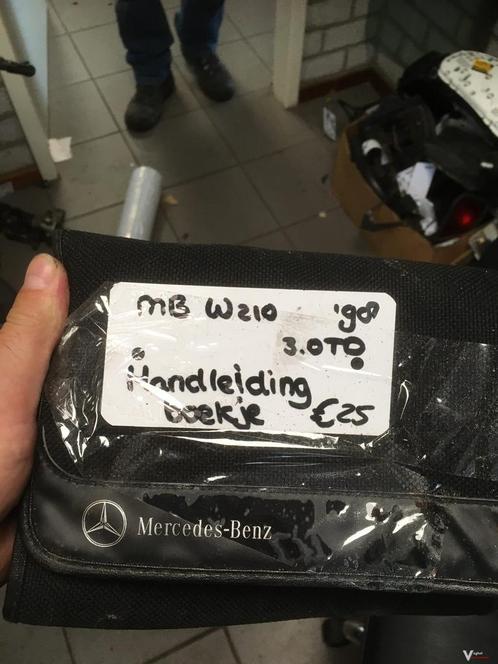 MB W210 '98
3.0TD
Handleiding
boekje €25
Mercedes-Benz